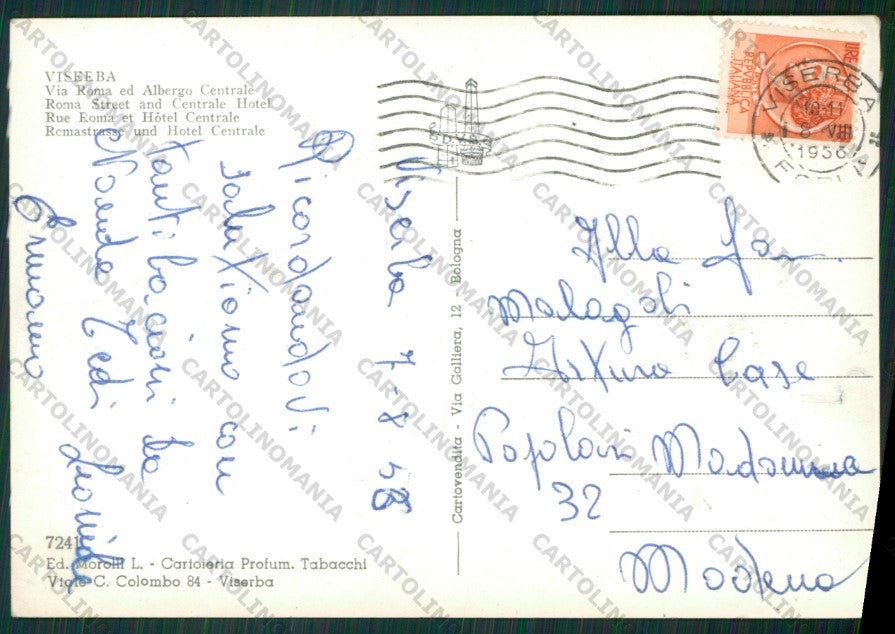 VISERBA
Via Roma ed Albergo Centrale
Roma Street and Centrale Hotel
Rue Roma et Hôtel Centrale
Romastrasse und Hotel Centrale
Viserba 7-8-58
Ricordandovi
salutiamo con
tanti bacioni la
Nonda Tedi Leonilda
Ermanno
7241
Ed. Morolli L. - Cartoleria Profum. Tabacchi
Viale C. Colombo 84 - Viserba
Cartovendita - Via Galliera, 12 - Bologna
LIRE
REPVBBLICA
ITALIANA
VISERBA
10-11
8 VIII
Alla Fam.
Malagoli
Arturo Case
Popolari Madonnina
32
Modena
CARTOLINOMANIA